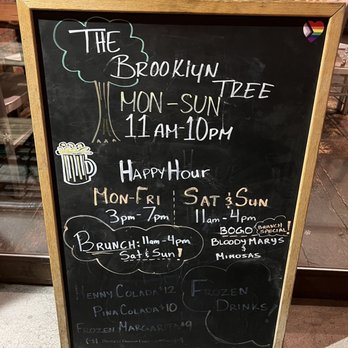 THE
BROOKLYN
TREE
MON-SUN
11 AM-10PM
HAPPY HOUR
MON-FRI
3pm-7pm
SAT & SUN
11am-4pm
BOGO
BRUNCH SPECIAL!
BLOODY MARYS
&
MIMOSAS
BRUNCH: 11am-4pm
Sat & Sun!
HENNY COLADA $12
PINA COLADA $10
FROZEN MARGARITA $9
FROZEN
DRINKS!